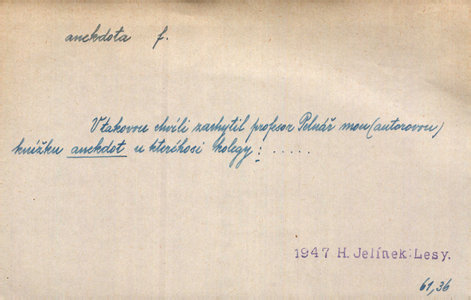 anekdota f.
V takovou chvíli zachytil profesor Pelnář mou (autorovu)
knížku anekdot u kteréhosi kolegy: .....
1947 H. Jelínek: Lesy.
61, 36